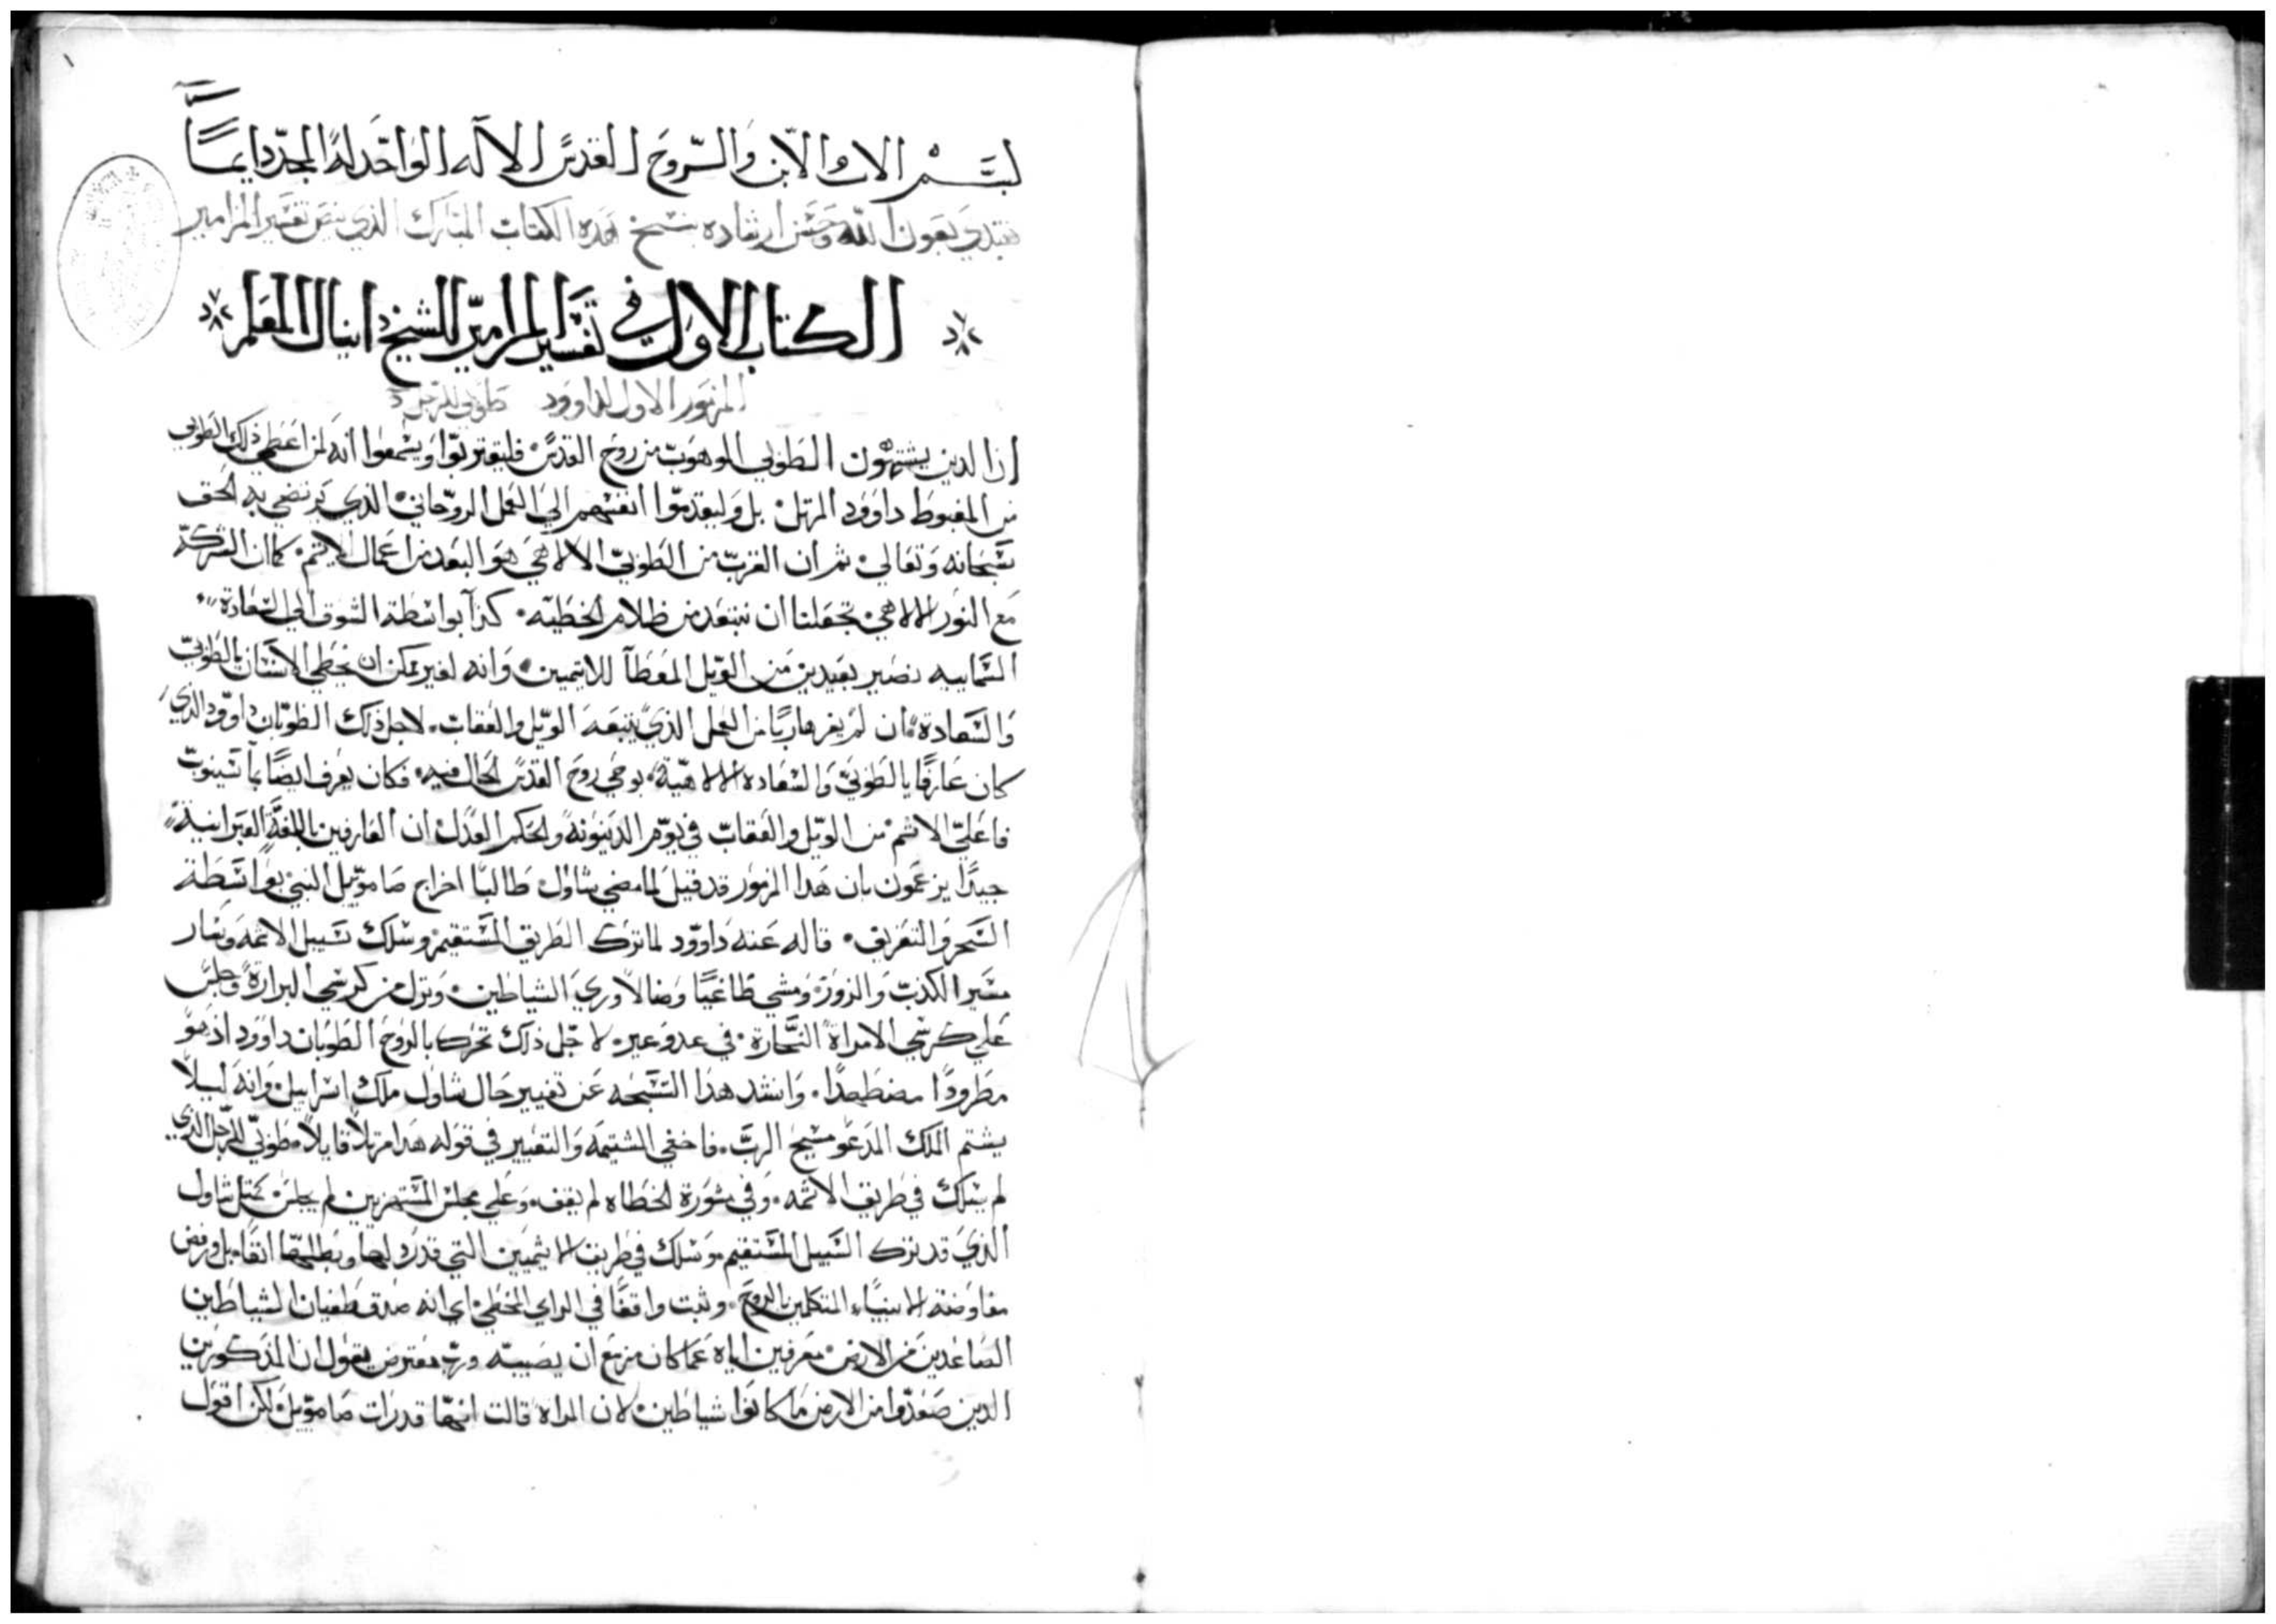 بسم الاب والابن والروح القدس الاله الواحد له المجد دايماً
نبتدي بعون الله وحسن ارشاده بنسخ هذه الكتاب المبارك الذي يتضمن تفسير المزامير
الكتاب الاول في تفسير المزامير للشيخ دانيال المعلم
المزمور الاول لداوود طوبي للرجل
ان الدين يشتهون الطوبي الموهوب من روح القدس فليقتربوا ويسمعوا انه لمن اعطي ذلك الطوبي
من المغبوط داوود المرتل بل وليقدموا انفسهم الي العمل الروحاني الذي يرتضي به الحق
سبحانه وتعالي ثم ان القرب من الطوبي الالاهي هو البعد من اعمال الاثم كما ان الشركة
مع النور الالاهي تجعلنا ان نبتعد من ظلام الخطيه كدا بواسطة الشوق الي السعادة
السماييه نصير بعيدين من الويل المعطا للاثيمين وانه لغير ممكن ان يحظي الانسان بالطوبي
والسعادة ان لم يفر هاربًا من العمل الذي يتبعه الويل والعقاب لاجل ذلك الطوبان داوود الذي
كان عارفًا بالطوبي والسعاده الالاهية بوحي روح القدس الحال فيه فكان يعرف ايضًا بما سينوب
فاعلي الاثم من الويل والعقاب في يوم الدينونه والحكم العدل ان العارفين باللغة العبرانية
جيدًا يزعمون بان هذا المزمور قد قيل لما مضي شاول طالبًا اخراج صاموييل النبي بواسطة
السحر والتعريف قاله عنه داوود لما ترك الطريق المستقيم وسلك سبيل الاثمه وسار
مسير الكدب والزور ومشي طاغيًا وضالاً وري الشياطين ونزل من كرسي البرارة وجلس
علي كرسي الامراة السحارة في عدوعير لاجل ذلك تحرك بالروح الطوبان داوود اذ هو
مطرودًا مضطهدًا وانشد هذا التسبحه عن تغيير حال شاول ملك اسراييل وانه ليلا
يشتم الملك المدعو مسيح الرب فاخفي الشتيمه والتعيير في قوله هدا مرتلاً قايلاً طوبي للرجل الذي
لم يسلك في طريق الاثمه وفي مشورة الخطاه لم يقف وعلي مجلس المستهزيين لم يجلس كمثل شاول
الذي قد ترك السبيل المستقيم وسلك في طريق الاثيميين التي قد رد لها وبطلها انفا بل ورفض
مفاوضة الانبياء المتكلمين بالروح وثبت واقفًا في الراي المخطي اي انه صدق طغيان الشياطين
الصاعدين من الارض معرفين اياه عما كان مزمع ان يصيبه ورب معترض يقول ان المذكورين
الدين صعدوا من الارض ما كانوا شياطين لان المراه قالت انها قد رات صاموييل لكن اقول